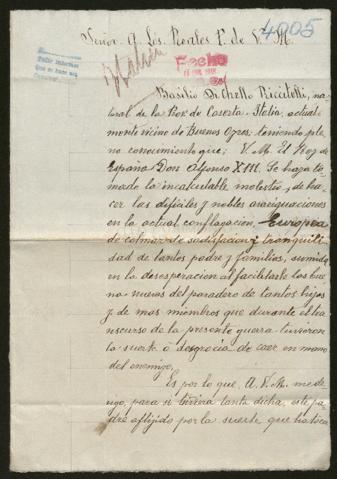 4005
Señor. A Los Reales P. de V. M.
Pedir informes
Fecho
Basilio Di Chello Riccitelli, na-
tural de la Prov. de Caserta- Italia, actual-
mente vecino de Buenos Ayres, teniendo ple-
no conocimiento que; V. M. El Rey de
España Don Alfonso XIII. Se haya to-
mado la incalculable molestia, de ha-
cer las dificiles y nobles averiguaciones
en la actual conflagacion, Europea
de colmar de satisfacion y tranquili-
sad de tantos padre y familias, sumida
en la desesperacion al facilitarle las bue-
na nuevas del paradero de tantos hijos
y de mas miembros que durante el tran-
scurso de la presente guerra tuvieron
la suerte o desgracia de caer en mano
del enemigo,
Es por lo que, A. V. M. me di-
rijo, para si tuviera tanta dicha, este pa-
dre aflijido por la suerte que ha toca